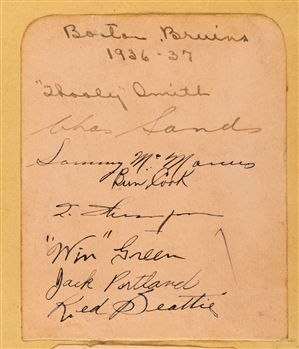 Boston Bruins
1936-37
"Hooley" Smith
Chas Sands
Sammy McManus
Bun Cook
T. Thompson
"Win" Green
Jack Portland
Red Beattie